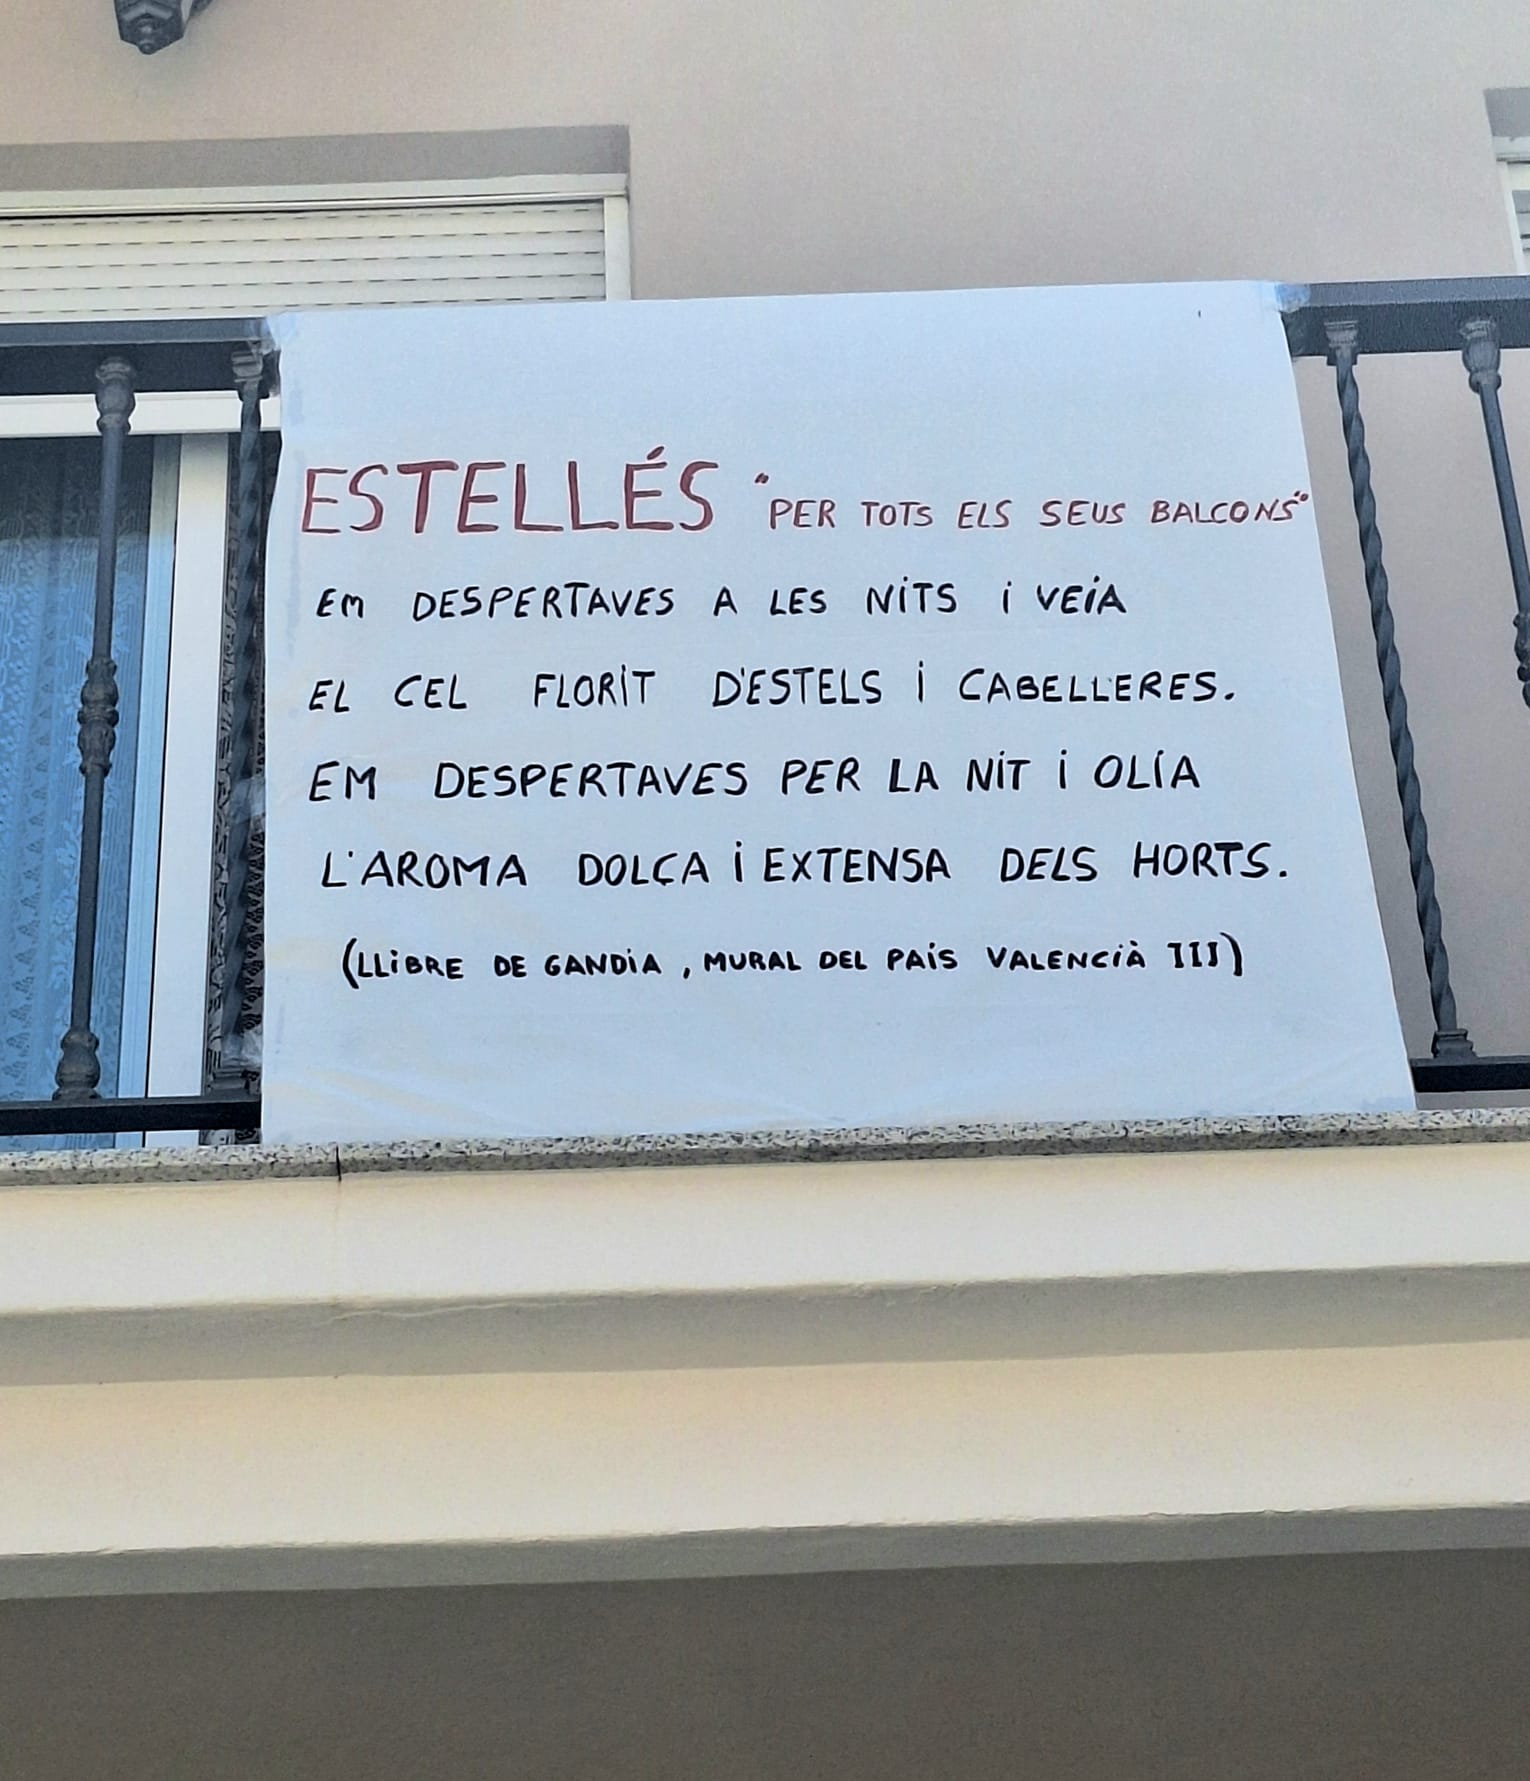 ESTELLÉS "PER TOTS ELS SEUS BALCONS"
EM DESPERTAVES A LES NITS I VEIA
EL CEL FLORIT D'ESTELS I CABELLERES.
EM DESPERTAVES PER LA NIT I OLÍA
L'AROMA DOLÇA I EXTENSA DELS HORTS.
(LLIBRE DE GANDIA, MURAL DEL PAÍS VALENCIÀ III)